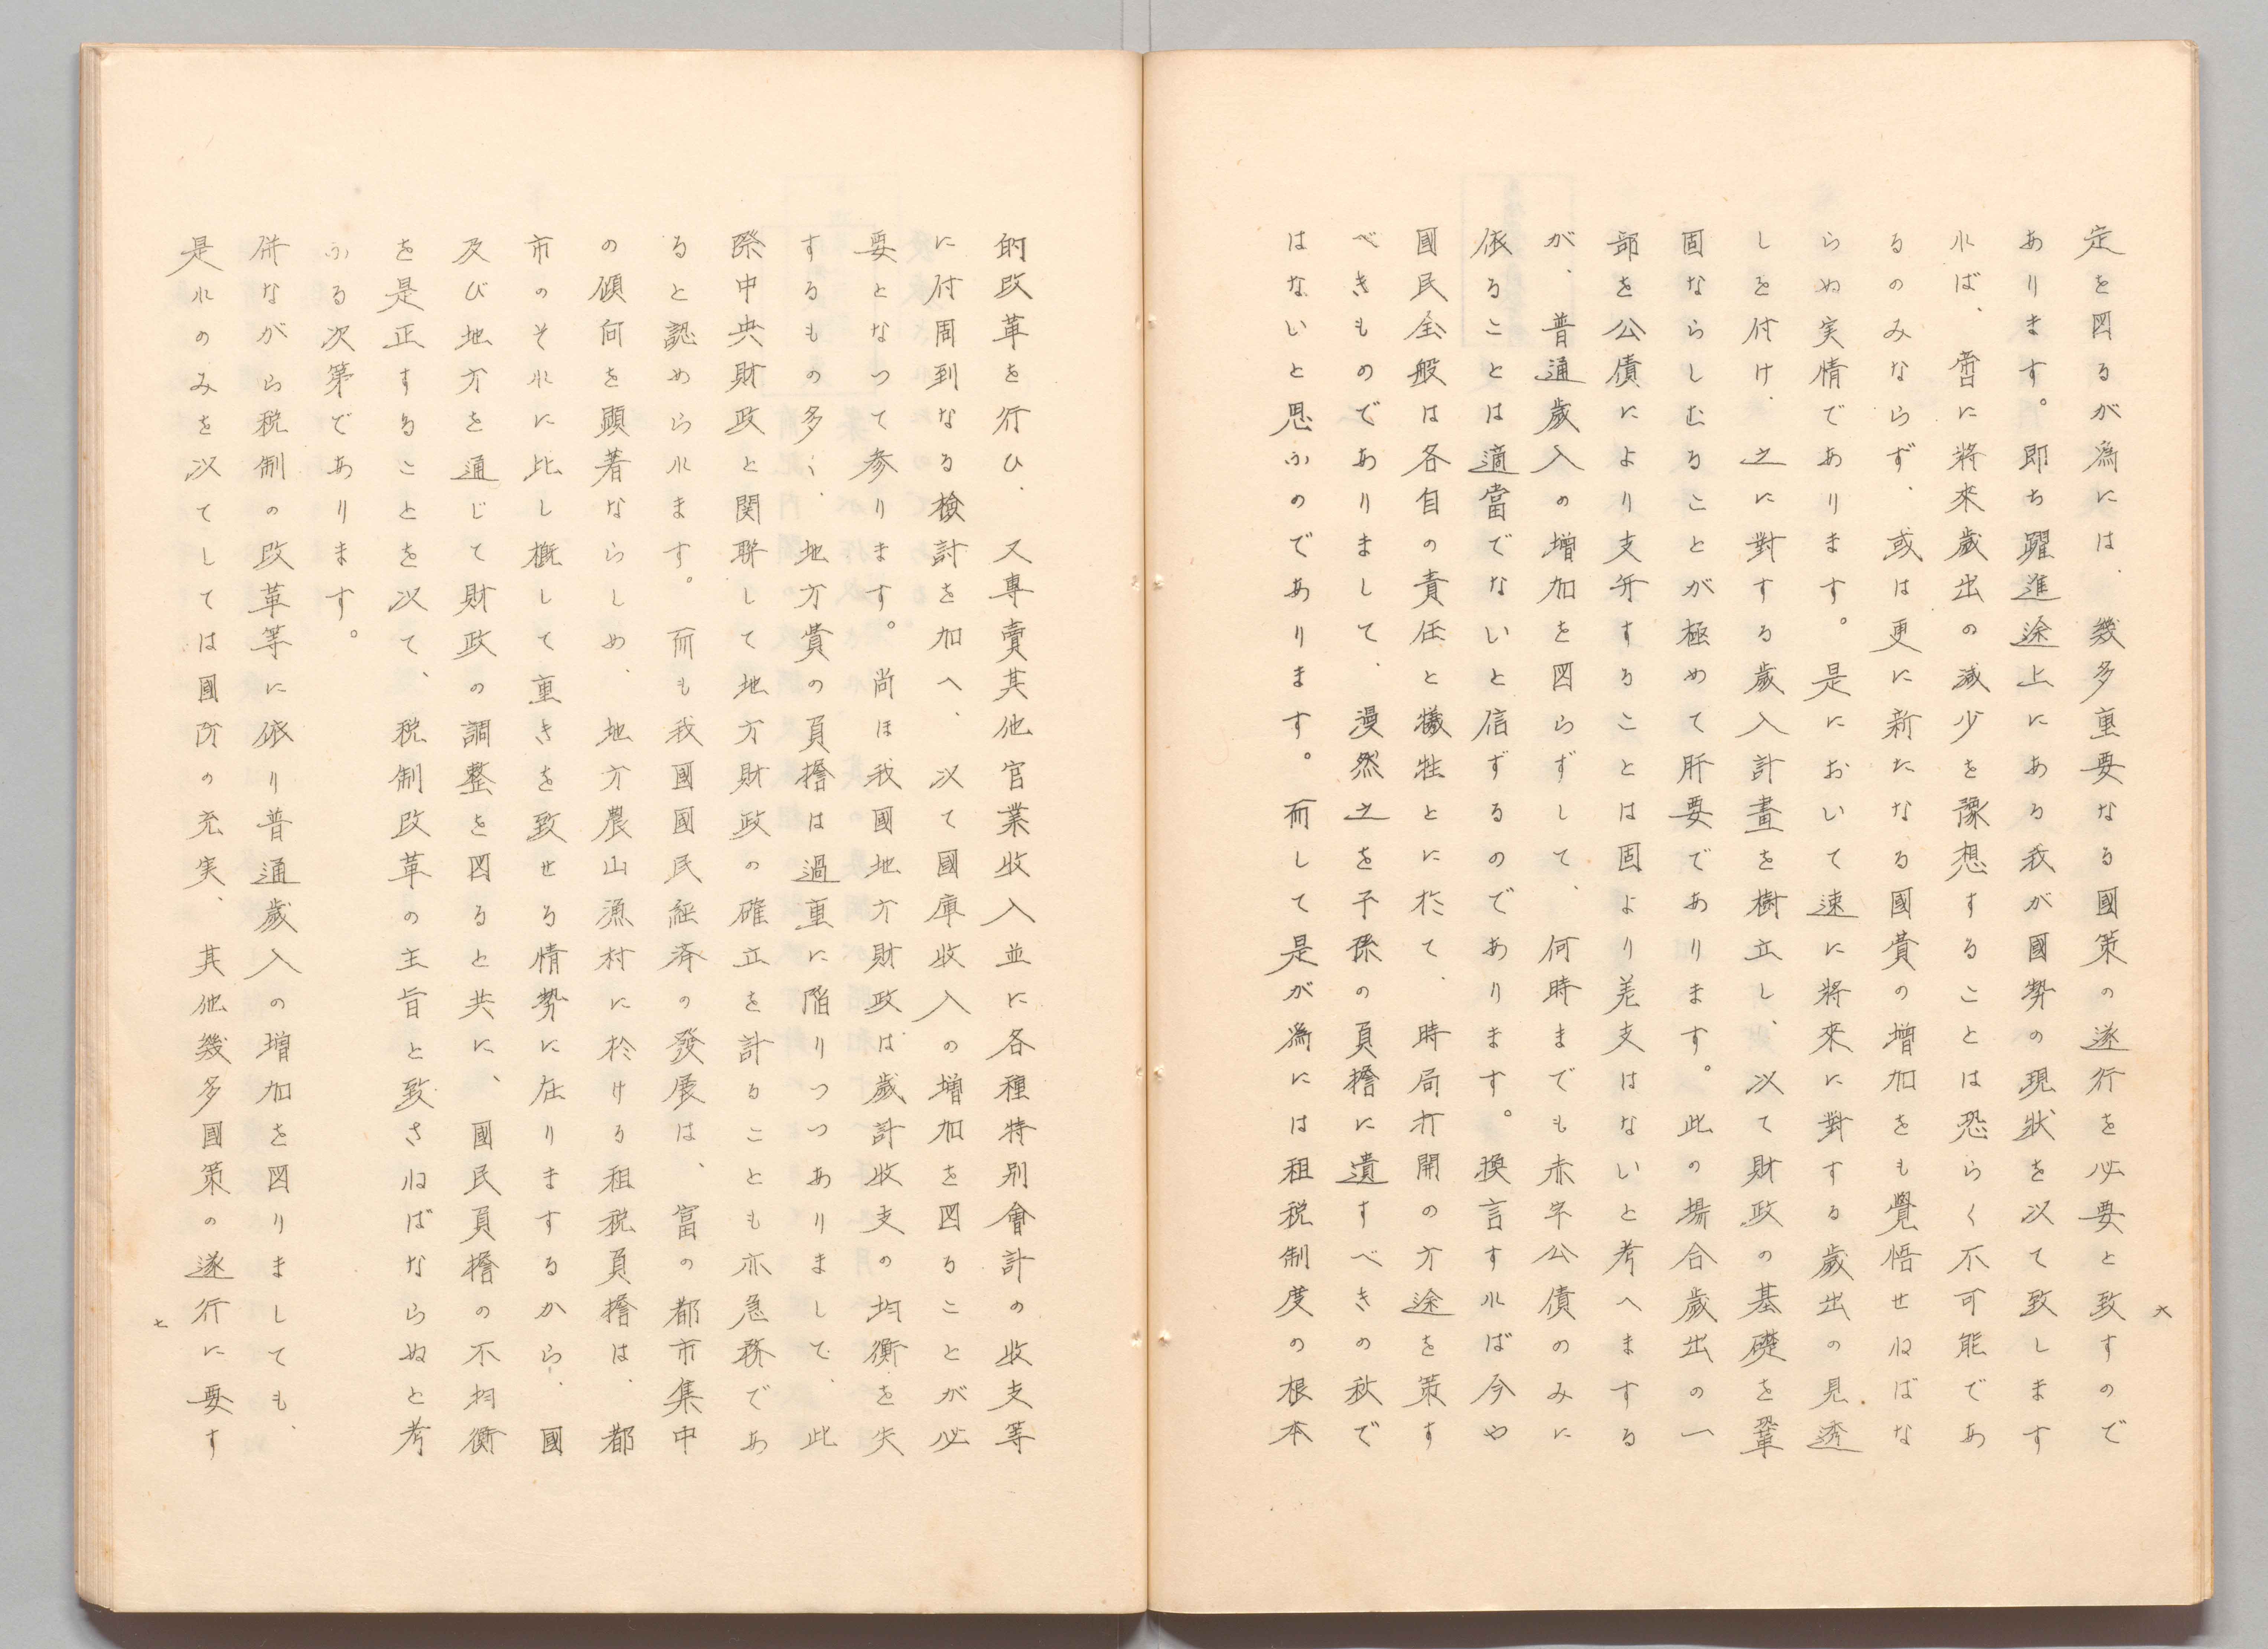 定を図るが為には、幾多重要なる國策の遂行を必要と致すので
あります。即ち躍進途上にある我が國勢の現狀を以て致します
れば、啻に將來歲出の減少を豫想することは恐らく不可能であ
るのみならず、或は更に新たなる國費の增加をも覺悟せねばな
らぬ実情であります。是において速に將來に對する歲出の見透
しを付け、之に對する歲入計畫を樹立し、以て財政の基礎を鞏
固ならしむることが極めて肝要であります。此の場合歲出の一
部を公債により支弁することは固より差支はないと考へまする
が、普通歲入の增加を図らずして、何時までも赤字公債のみに
依ることは適當でないと信ずるのであります。換言すれば今や
國民全般は各自の責任と犠牲とに於て、時局打開の方途を策す
べきものでありまして、漫然之を子孫の負擔に遺すべきの秋で
はないと思ふのであります。而して是が為には租税制度の根本
六
的改革を行ひ、又專賣其他官業收入並に各種特別會計の收支等
に付周到なる檢討を加へ、以て國庫收入の增加を図ることが必
要となつて参ります。尚ほ我國地方財政は歲計收支の均衡を失
するもの多く、地方費の負擔は過重に陥りつつありまして、此
際中央財政と関聯して地方財政の確立を計ることも亦急務であ
ると認められます。而も我國國民経済の發展は、富の都市集中
の傾向を顕著ならしめ、地方農山漁村に於ける租税負擔は、都
市のそれに比し概して重きを致せる情勢に在りまするから、國
及び地方を通じて財政の調整を図ると共に、國民負擔の不均衡
を是正することを以て、税制改革の主旨と致さねばならぬと考
ふる次第であります。
併ながら税制の改革等に依り普通歲入の增加を図りましても、
是れのみを以てしては國防の充実、其他幾多國策の遂行に要す
七